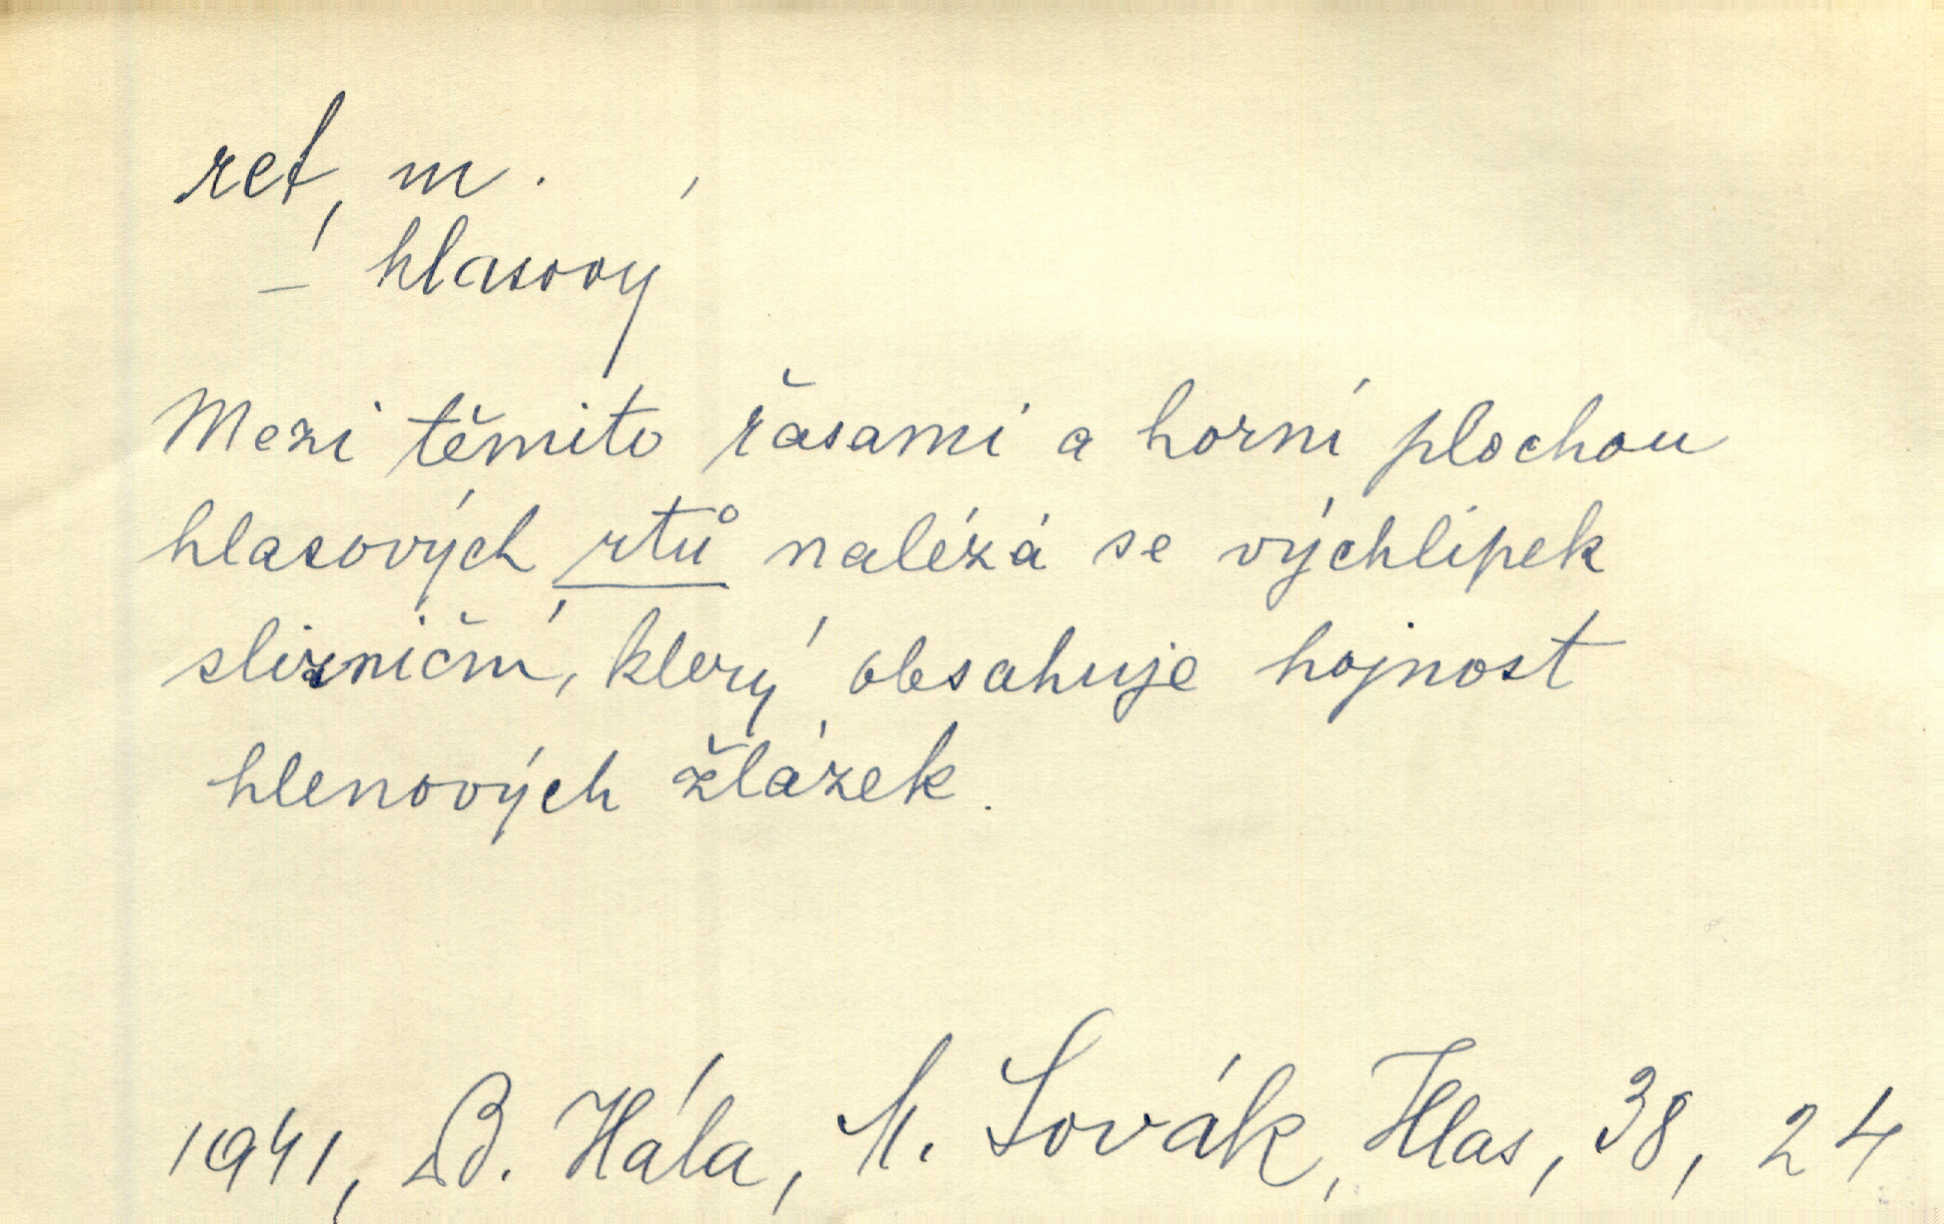 ret, m.
– hlasový
Mezi těmito řasami a horní plochou
hlasových rtů nalézá se výchlipek
slizniční, který obsahuje hojnost
hlenových žlázek.
1941, B. Hála, M. Sovák, Hlas, 38, 24